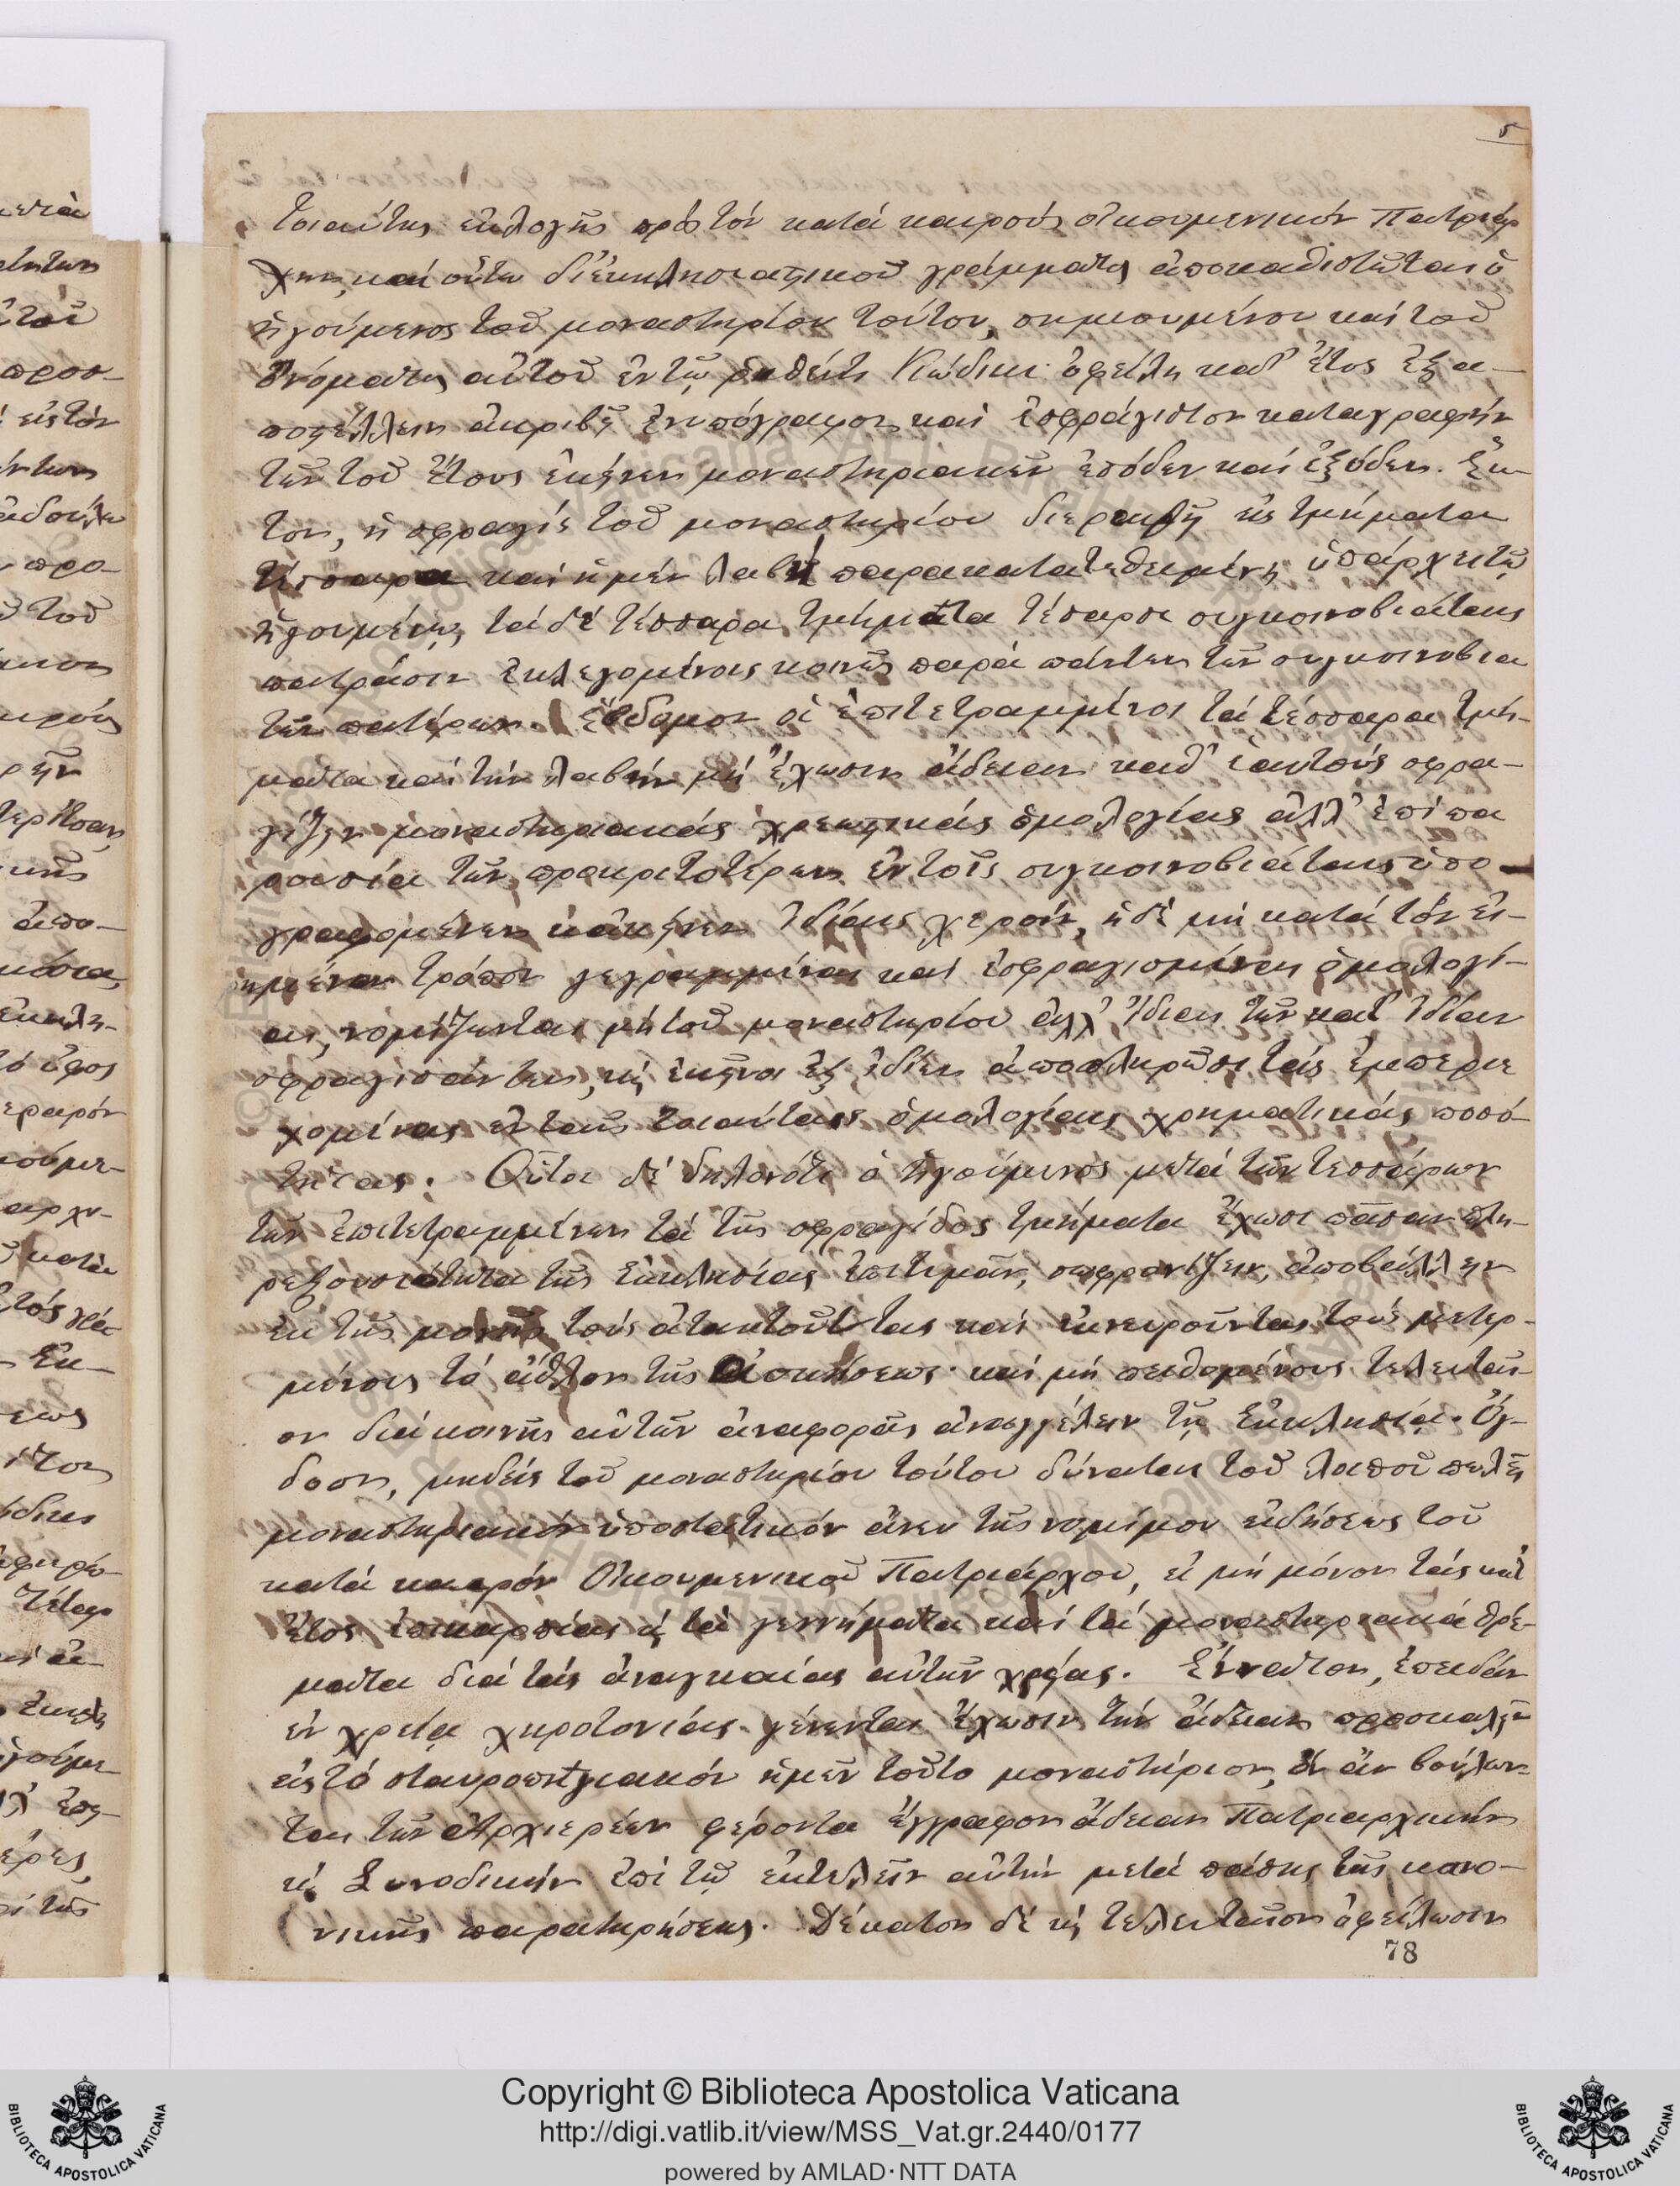 5
τοιαύτης ἐκλογῆς πρὸς τόν κατά καιρούς οἰκουμενικόν Πατριάρ
χην, καί οὕτω δι' ἐκκλησιαστικοῦ γράμματος ἀποκαθιστᾶται ὁ
ἡγούμενος τοῦ μοναστηρίου τούτου, σημειουμένου καί τοῦ
ὀνόματος αὐτοῦ ἐν τῷ ῥηθέντι Κώδικι· ὀφείλη καθ' ἔτος ἐξα-
ποστέλλειν ἀκριβῆ ἐνυπόγραφον καί ἐσφράγιστον καταγραφήν
τῶν τοῦ ἔτους ἐκείνου μοναστηριακῶν ἐσόδων καί ἐξόδων. Ἕκ-
τον, ἡ σφραγίς τοῦ μοναστηρίου διερεθῇ εἰς τμήματα
τέσσαρα καί ἡ μέν λαβή παρακατατεθειμένη ὑπάρχει τῷ
ἡγουμένῳ, τά δέ τέσσαρα τμήματα τέσαρσι συγκοινοβιάταις
πατράσιν ἐκλεγομένοις κοινῶς παρά πάντων τῶν συγκοινοβια
τῶν πατέρων. Ἕβδομον οἱ ἐπιτετραμμένοι τά τέσσαρα τμή-
ματα καί τήν λαβήν μή ἔχωσιν ἄδειαν καθ' ἑαυτούς σφρα-
γίζειν μοναστηριακάς χρεωστικάς ὁμολογίας ἀλλ' ἐπί πα
ρουσίᾳ τῶν προκριτοτέρων ἐν τοῖς συγκοινοβιάταις ὑπο-
γραφομένων κἀκείνων ἰδίαις χερσίν, ἡ δέ μή κατά τόν εἰ-
ρημένον τρόπον γεγραμμέναι καί ἐσφραγισμέναι ὁμολογί-
αι, νομίζωνται μή τοῦ μοναστηρίου ἀλλ' ἴδιαι τῶν κατ' ἰδίαν
σφραγισάντων, κ ἐκεῖνοι ἐξ ἰδίων ἀποπληρῶσι τάς ἐμπεριε
χομένας ἐν ταῖς τοιαύταις ὁμολογίαις χρηματικάς ποσό-
τητας. Οὗτοι δέ δηλονότι ὁ ἡγούμενος μετά τῶν τεσσάρων
τῶν ἐπιτετραμμένων τά τῆς σφραγίδος τμήματα ἔχωσι πᾶσαν πλη-
ρεξουσιότητα τῆς Ἐκκλησίας ἐπιτιμᾶν, σωφρονίζειν, ἀποβάλλειν
ἐκ τῆς μονῆς τούς ἀτακτοῦντας καί ἐκνευροῦντας τούς μετερ-
μένους τό ἆθλον τῆς ἀσκήσεως· καί μή πειθομένους τελευταῖ-
ον διά κοινῆς αὐτῶν ἀναφορᾶς ἀναγγέλειν τῇ Ἐκκλησίᾳ. Ὄγ-
δοον, μηδείς τοῦ μοναστηρίου τούτου δύναται τοῦ λοιποῦ πωλεῖν
μοναστηριακόν ὑποστατικόν ἄνευ τῆς νομίμου εἰδήσεως τοῦ
κατά καιρόν Οἰκουμενικοῦ Πατριάρχου, εἰ μή μόνον τάς κατ'
ἔτος ἐπικαρπίας κ τά γεννήματα καί τά μοναστηριακά θρέ-
ματα διά τάς ἀναγκαίας αὐτῶν χρείας. Ἔννατον, ἐπειδάν
ἐν χρείᾳ χειροτονίας γένωνται ἔχωσιν τήν ἄδειαν προσκαλεῖν
εἰς τό σταυροπηγιακόν ἡμῶν τοῦτο μοναστήριον, ὅν ἄν βούλων-
ται τῶν Ἀρχιερέων φέροντα ἔγγραφον ἄδειαν Πατριαρχικήν
κ Συνοδικήν ἐπί τῷ ἐκτελεῖν αὐτήν μετά πάσης τῆς κανο-
νικῆς παρατηρήσεως. Δέκατον δέ κ τελευταῖον ὀφείλωσιν
78
Copyright © Biblioteca Apostolica Vaticana
http://digi.vatlib.it/view/MSS_Vat.gr.2440/0177
powered by AMLAD·NTT DATA
BIBLIOTECA APOSTOLICA VATICANA
BIBLIOTECA APOSTOLICA VATICANA